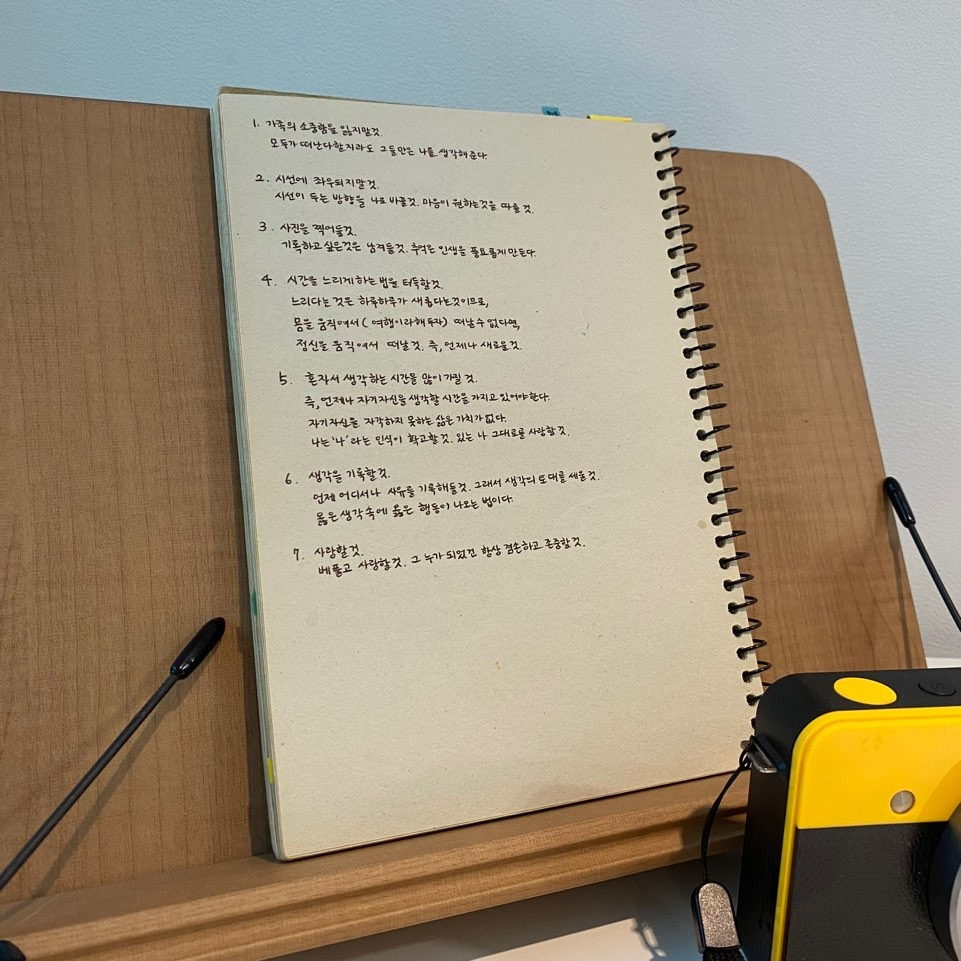 1. 가족의 소중함을 잃지말것.
모두가 떠난다할지라도 그들만은 나를 생각해준다.
2. 시선에 좌우되지말것.
시선이 두는 방향을 나로 바꿀것. 마음이 원하는것을 따를 것.
3. 사진을 찍어둘것.
기록하고 싶은것은 남겨둘것. 추억은 인생을 풍요롭게 만든다
4. 시간을 느리게하는 법을 터득할것.
느리다는 것은 하루하루가 새롭다는것이므로,
몸을 움직여서 (여행이라해두자) 떠날수 없다면,
정신을 움직여서 떠날것. 즉, 언제나 새로울것.
5. 혼자서 생각하는 시간을 많이가질 것.
즉, 언제나 자기자신을 생각할 시간을 가지고 있어야 한다.
자기자신을 자각하지 못하는 삶은 가치가 없다.
나는 '나' 라는 인식이 확고할것. 있는 나 그대로를 사랑할것.
6. 생각을 기록할것.
언제 어디서나 사유를 기록해둘것. 그래서 생각의 토대를 세울것.
옳은생각속에 옳은 행동이 나오는 법이다.
7. 사랑할것.
베풀고 사랑할것. 그 누가 되었건 항상 겸손하고 존중할것.